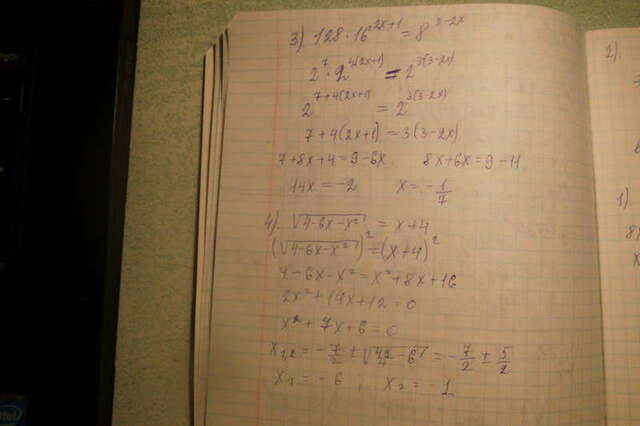 3) 128·16^(2x+1) = 8^(3-2x)
2^7 · 2^(4(2x+1)) = 2^(3(3-2x))
2^(7+4(2x+1)) = 2^(3(3-2x))
7+4(2x+1)=3(3-2x)
7+8x+4=9-6x 8x+6x=9-11
14x=-2 x=-1/7
4) √(4-6x-x²) = x+4
(√(4-6x-x²))² = (x+4)²
4-6x-x²=x²+8x+16
2x²+14x+12=0
x²+7x+6=0
x1,2 = -7/2 ± √(49/4-6) = -7/2 ± 5/2
x1=-6; x2=-1
2).
1)
8
x
intel